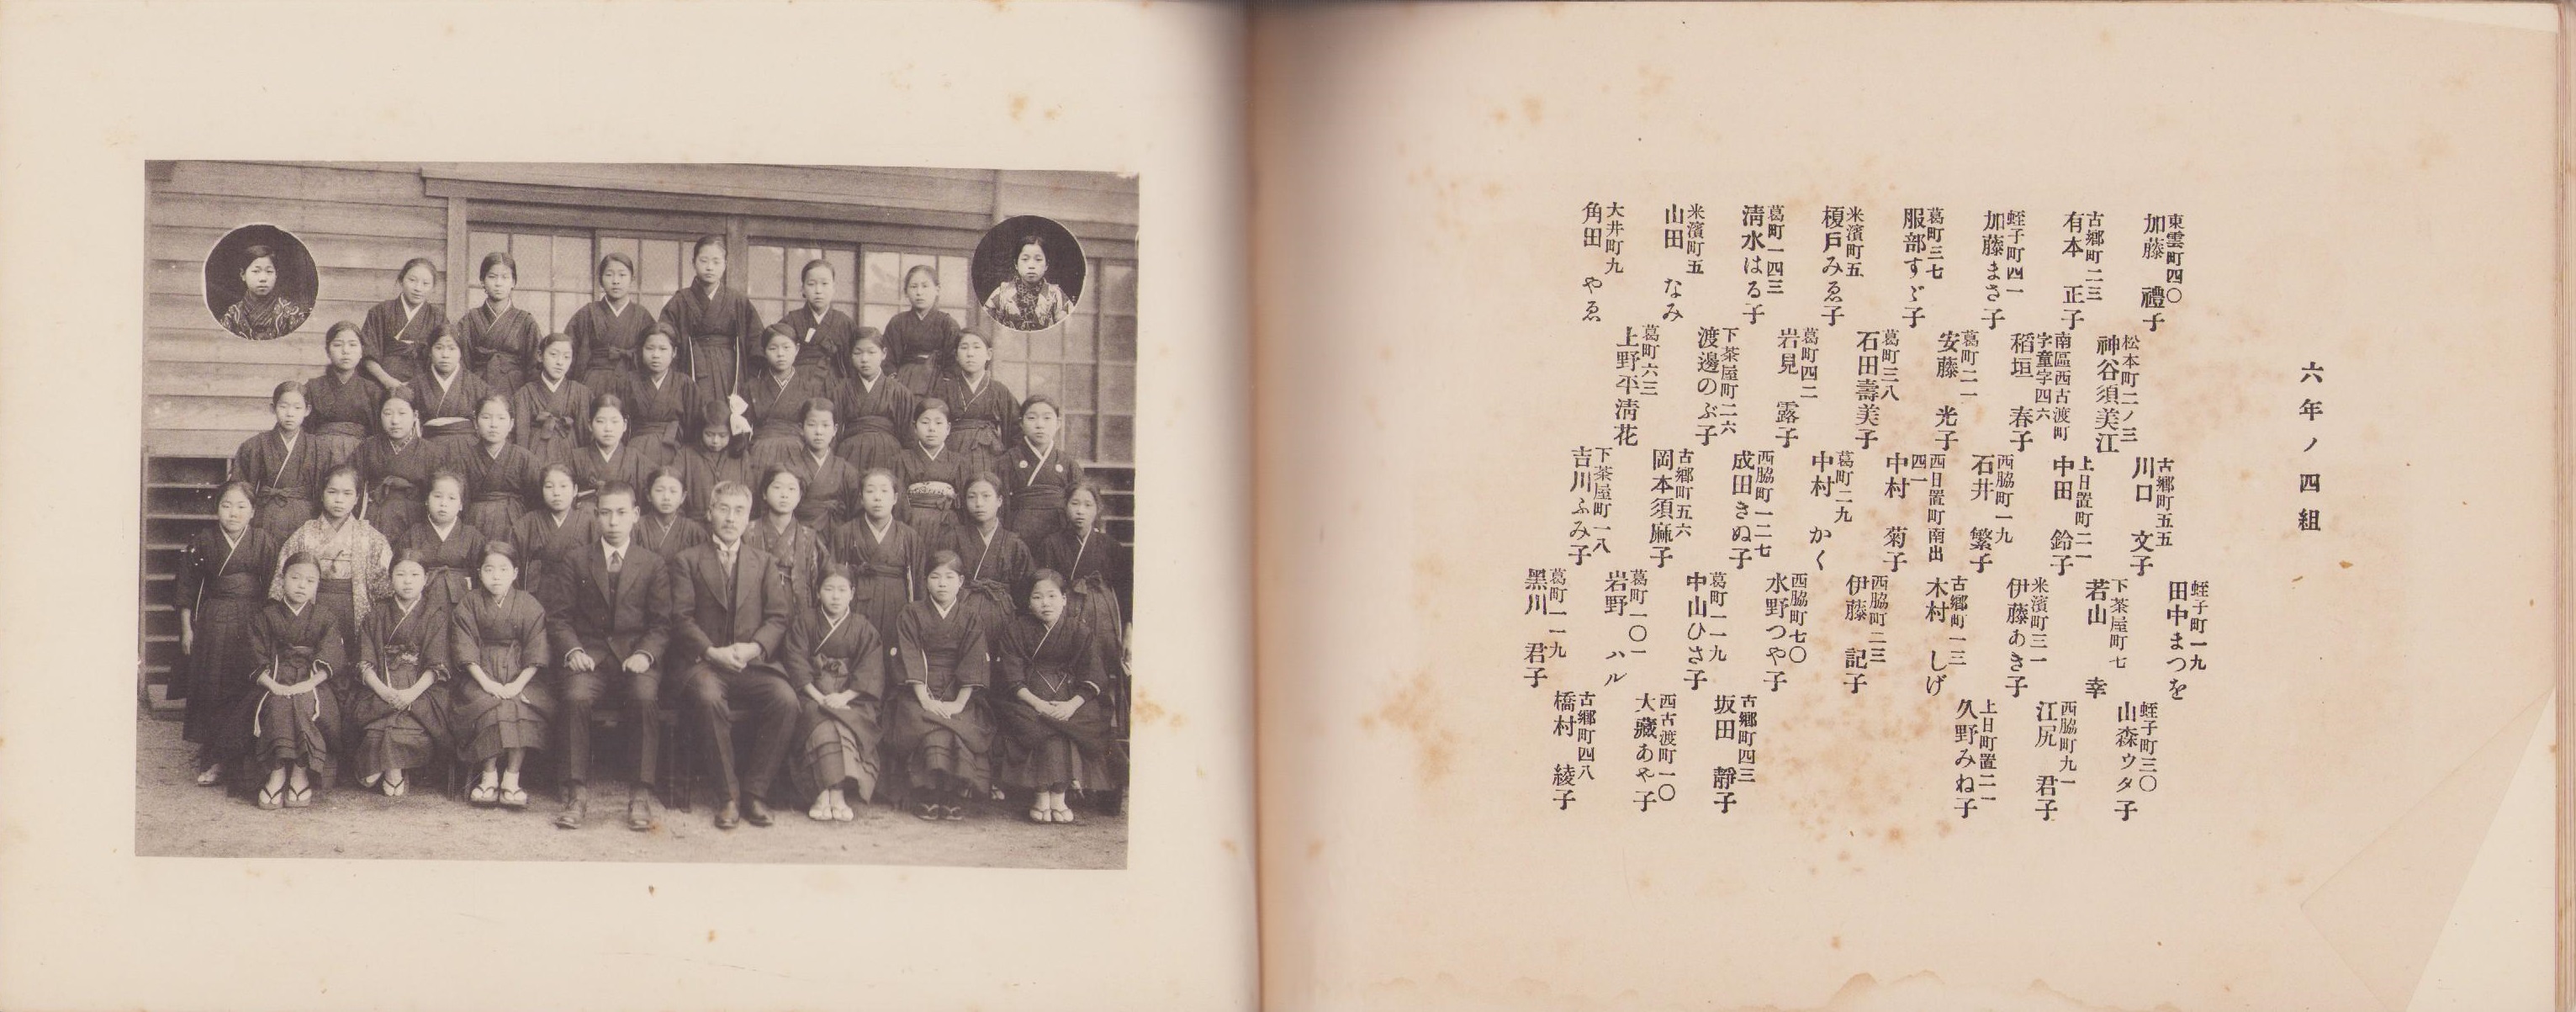 六年ノ四組
東雲町四〇
加藤 禮子
古鄉町二三
有本 正子
蛭子町四一
加藤まさ子
葛町三七
服部すゞ子
米濱町五
榎戸みゑ子
葛町一四三
淸水はる子
米濱町五
山田 なみ
大井町九
角田 やゑ
松本町二ノ三
神谷須美江
南區西古渡町
字童字四六
稻垣 春子
葛町二一
安藤 光子
葛町三八
石田壽美子
葛町四二
岩見 露子
下茶屋町二六
渡邊のぶ子
葛町六三
上野平淸花
古鄉町五五
川口 文子
上日置町二一
中田 鈴子
西脇町一九
石井 繁子
西日置町南出
四一
中村 菊子
葛町二九
中村 かく
西脇町一二七
成田きぬ子
古鄉町五六
岡本須麻子
下茶屋町一八
吉川ふみ子
蛭子町一九
田中まつを
下茶屋町七
若山 幸
米濱町三一
伊藤あき子
古鄉町一三
木村 しげ
西脇町二三
伊藤 記子
西脇町七〇
水野つや子
葛町一一九
中山ひさ子
葛町一〇一
岩野 ハル
葛町一一九
黑川 君子
蛭子町三〇
山森ウタ子
西脇町九一
江尻 君子
上日町置二一
久野みね子
古鄉町四三
坂田 靜子
西古渡町一〇
大藏あや子
古鄉町四八
橋村 綾子